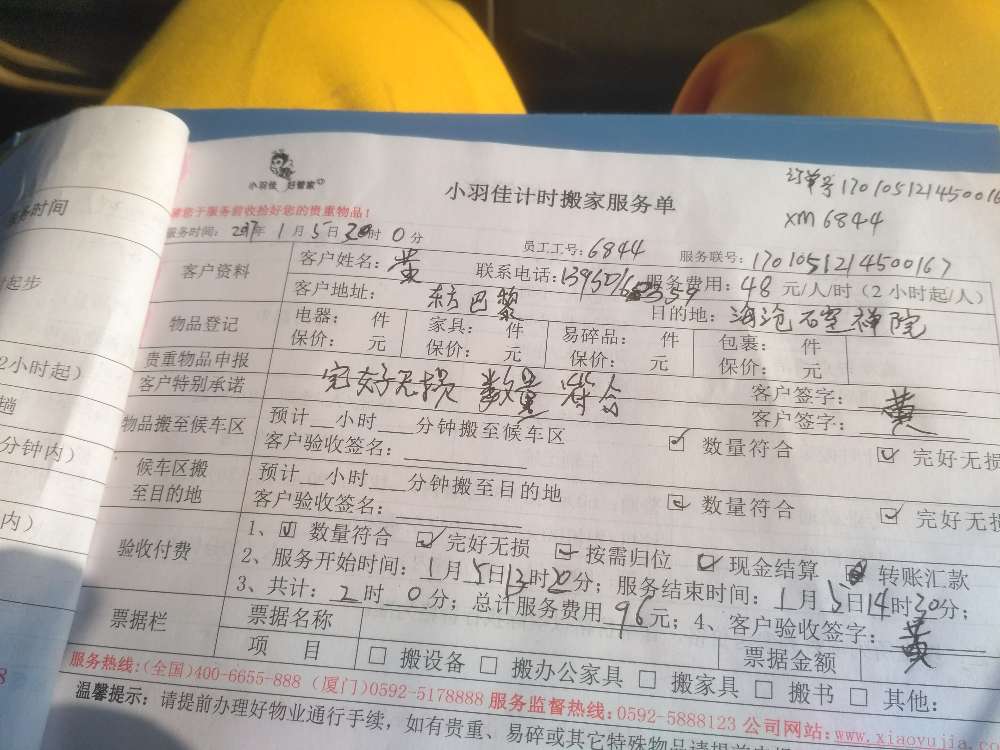 小羽佳 好管家
小羽佳计时搬家服务单
订单号170105121450016
XM 6844
请您于服务前收拾好您的贵重物品！
服务时间：2017年1月5日 时0分
员工工号：6844
服务联号：1701051214500167
客户资料
客户姓名：黄
联系电话：
服务费用：48元/人/时（2小时起/人）
客户地址：东方巴黎
目的地：海沧石室禅院
物品登记
电器： 件
保价： 元
家具： 件
保价： 元
易碎品： 件
保价： 元
包裹： 件
保价： 元
贵重物品申报
客户签字：
客户特别承诺
完好无损 数量符合
客户签字：黄
物品搬至候车区
预计__小时___分钟搬至候车区
客户验收签名：
☑ 数量符合
☑ 完好无损
候车区搬
至目的地
预计__小时___分钟搬至目的地
客户验收签名：
☑ 数量符合
☑ 完好无损
验收付费
1、☑ 数量符合 ☑ 完好无损 ☑ 按需归位 ☑ 现金结算 转账汇款
2、服务开始时间：1月5日12时20分；服务结束时间：1月5日14时20分；
3、共计：2时0分；总计服务费用96元；4、客户验收签字：黄
票据栏
票据名称
票据金额
项 目
□ 搬设备 □ 搬办公家具 □ 搬家具 □ 搬书 □ 其他：
服务热线：(全国)400-6655-888 (厦门)0592-5178888 服务监督热线：0592-5888123 公司网站：www.xiaoyujia.
温馨提示：请提前办理好物业通行手续，如有贵重、易碎或其它特殊物品请提前
服务时间
起步
2小时起）
趟
分钟内）
内）